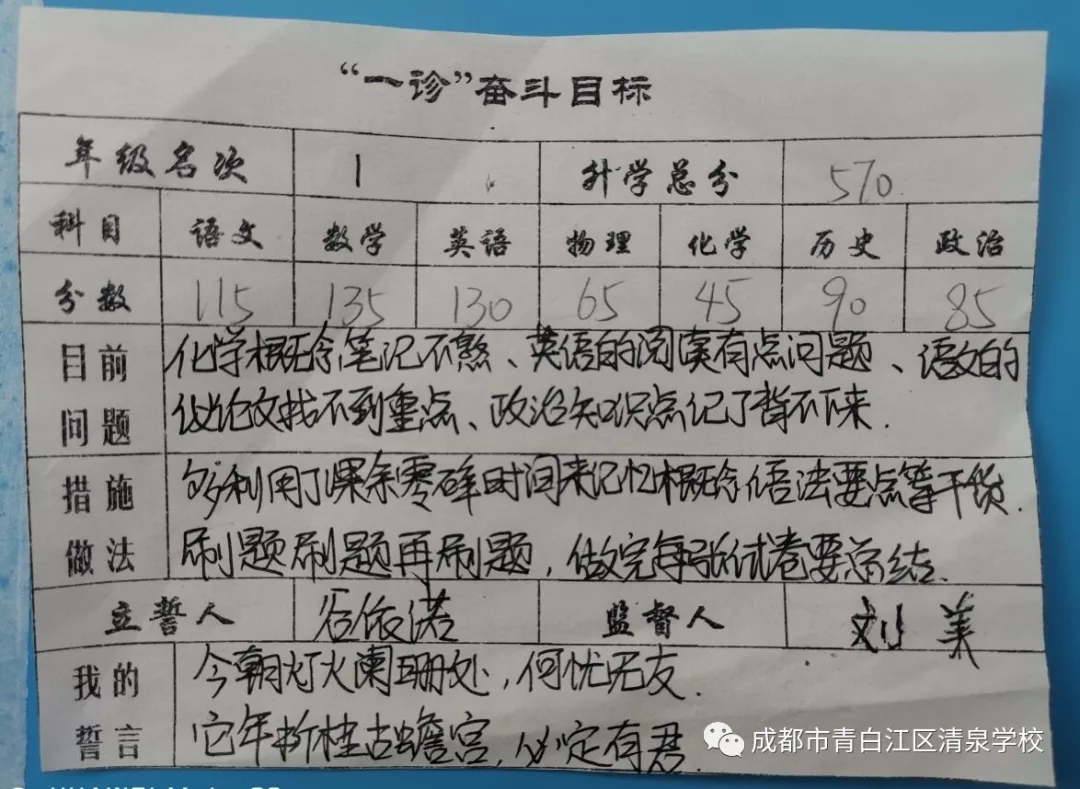 “一诊”奋斗目标
年级名次 1 升学总分 570.
科目 语文 数学 英语 物理 化学 历史 政治
分数 115 135 130 65 45 90 85
目前问题
化学概念笔记不熟、英语的阅读有点问题、语文的
议论文找不到重点、政治知识点记了背不下来.
措施做法
多利用了课余零碎时间来记忆概念语法要点等干货.
刷题刷题再刷题，做完每张试卷要总结.
立誓人 谷依诺 监督人 刘美
我的誓言
今朝灯火阑珊处，何忧无友.
它年折桂古蟾宫，必定有君.
成都市青白江区清泉学校